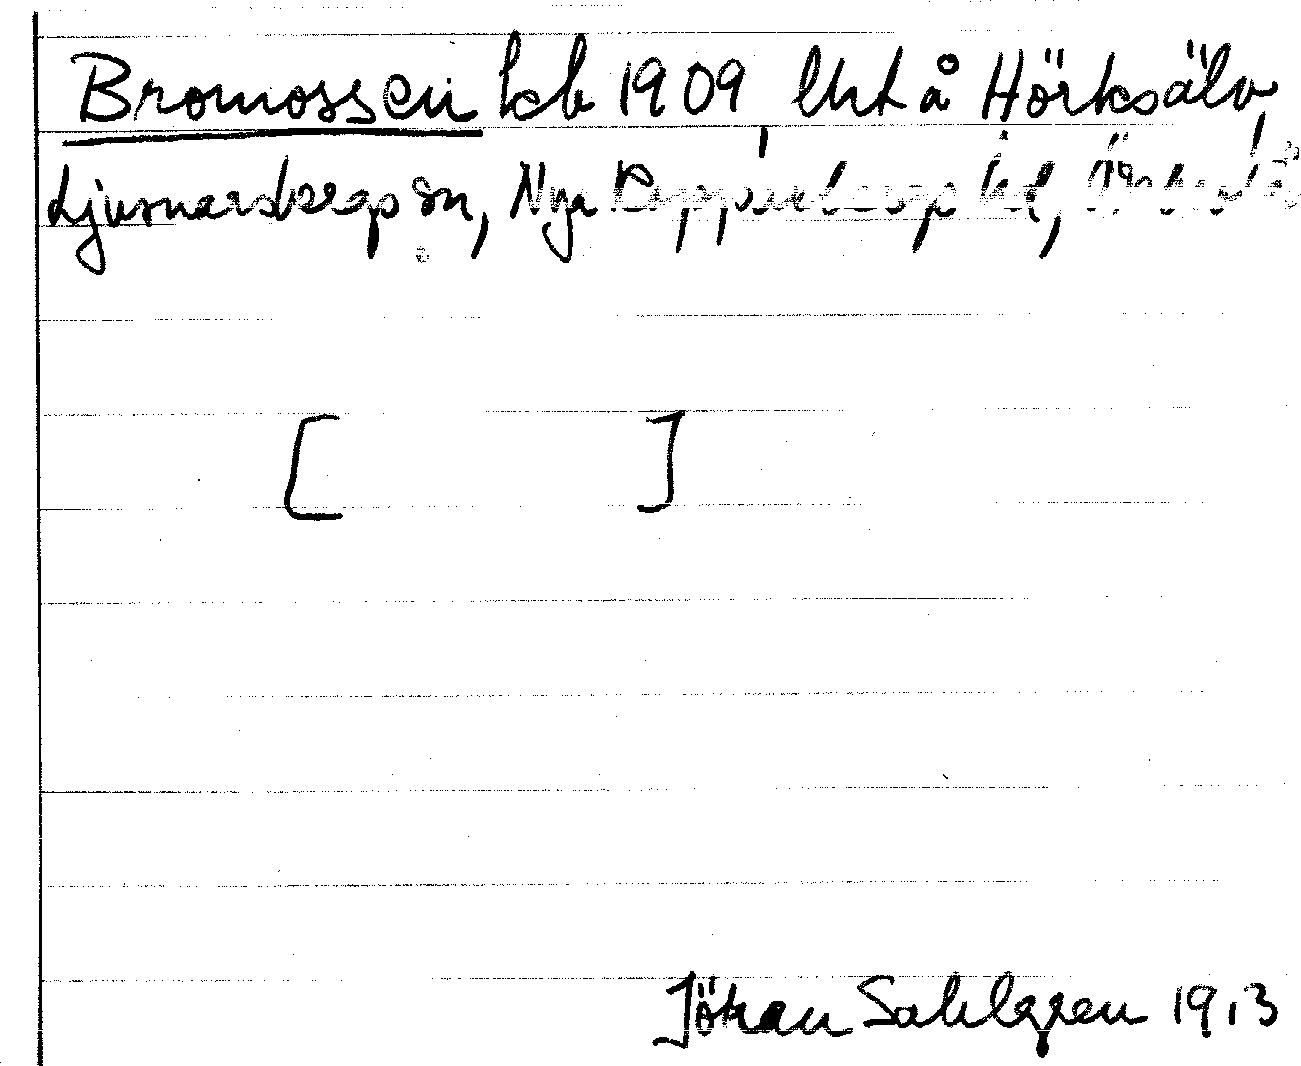 Bromossen kb 1909 lht å Hörksälv,
Ljusnarsbergs sn, Nya Kopparbergs hd,
[ ]
Jöran Sahlgren 1913